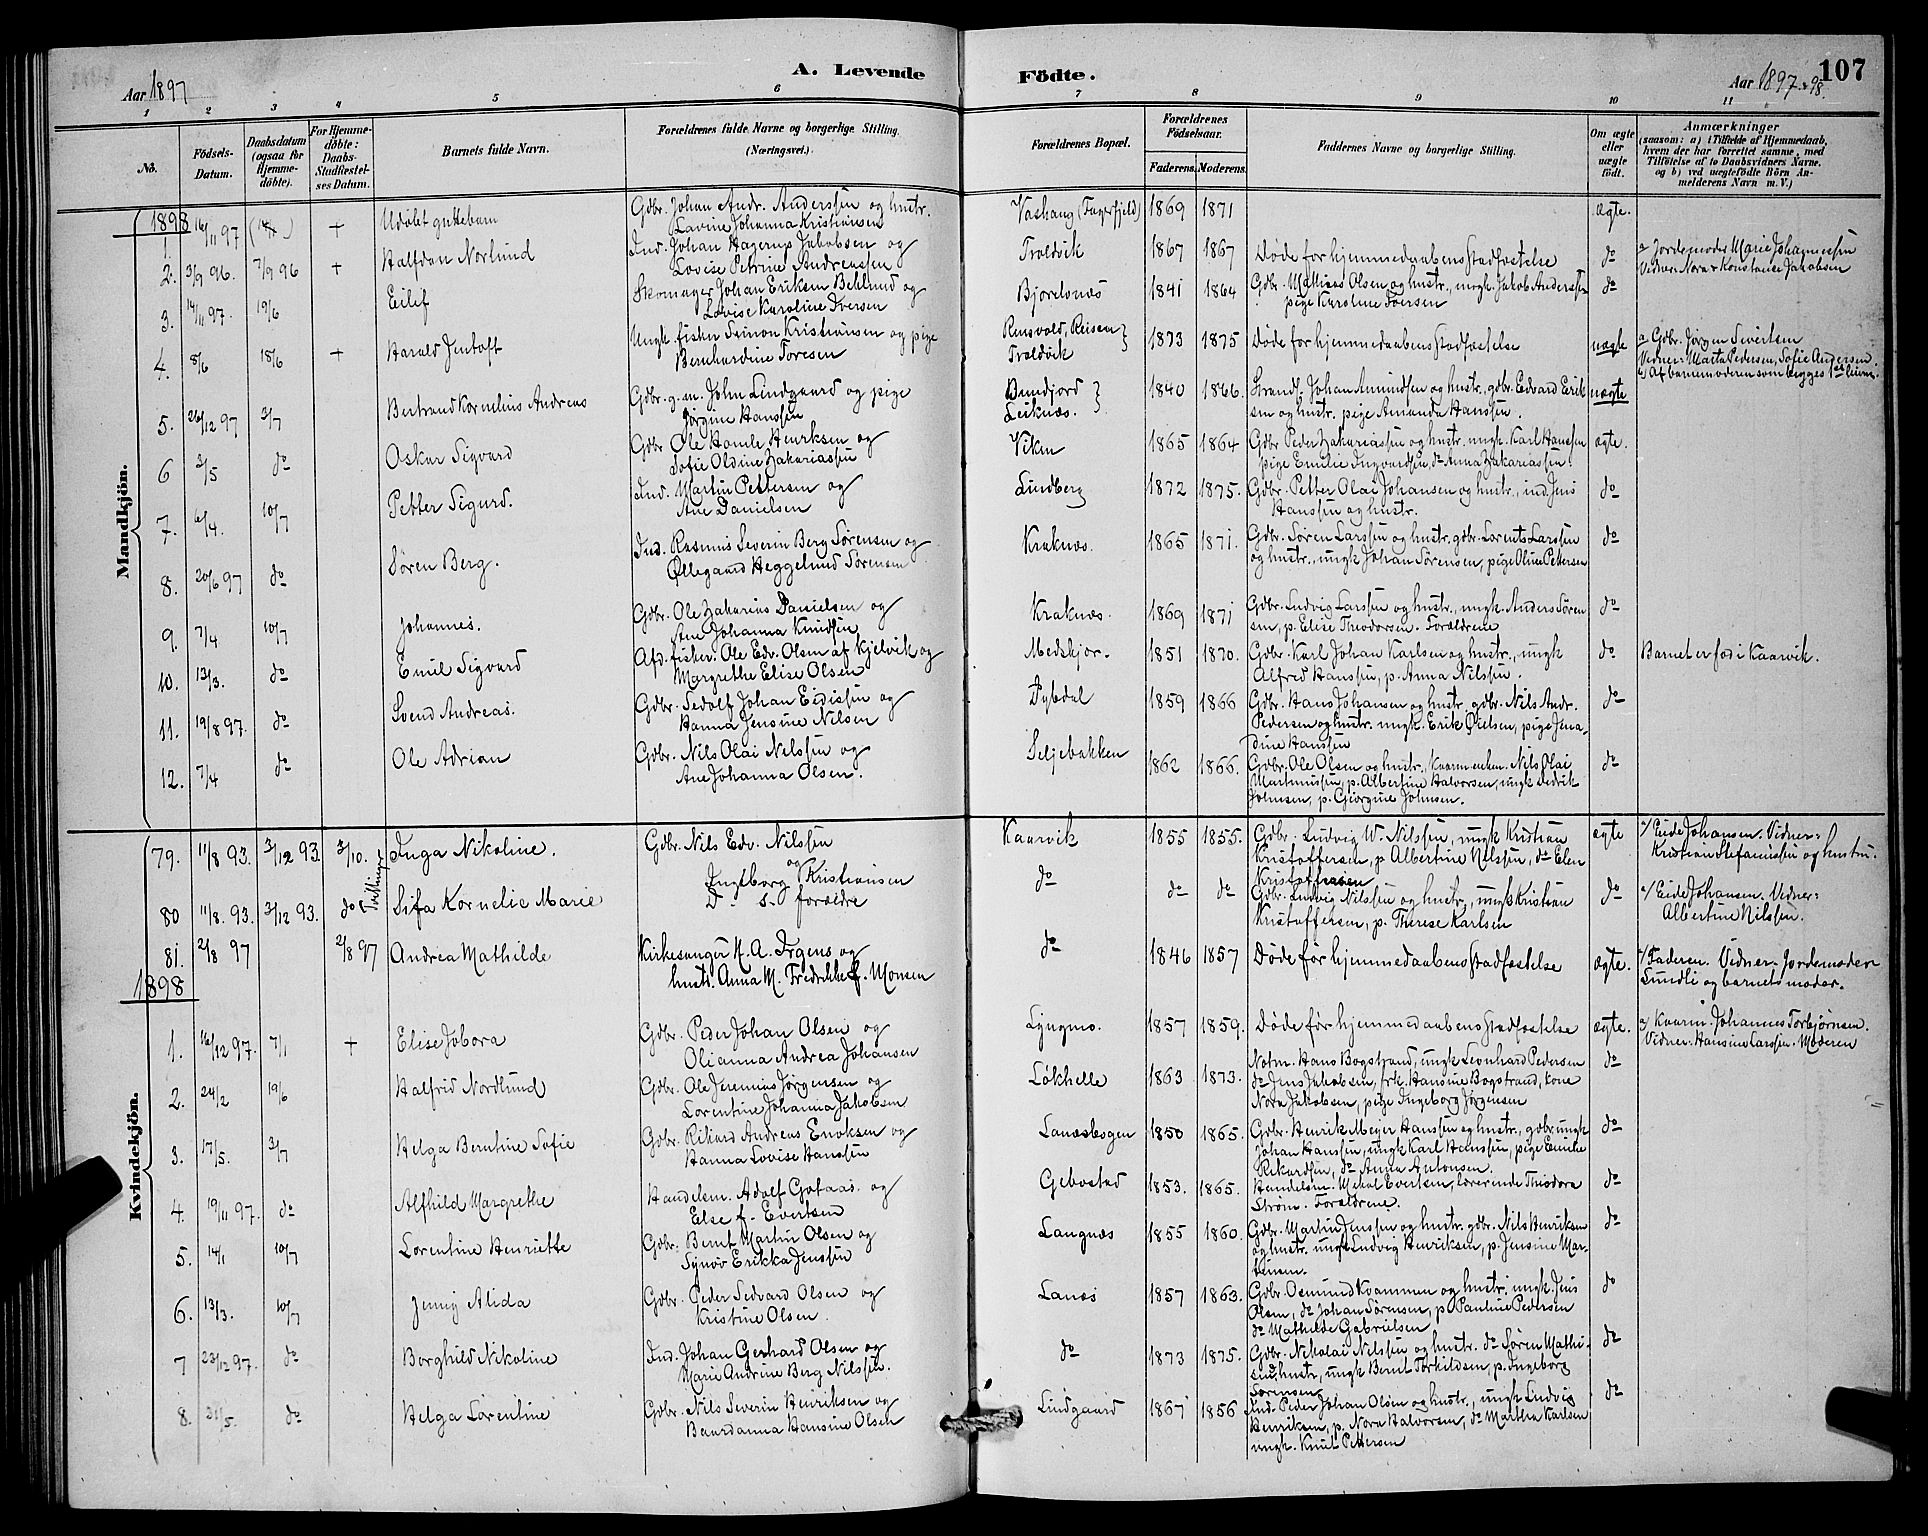 A. Levende Födte. 107
Aar 1897 Aar 1897-98.
1 2 3 4 5 6 7 8 9 10 11
No. Födsels-Datum. Daabsdatum (ogsaa for Hjemme-döbte). For Hjemme-döbte: Daabs-Stadfæstel-ses Datum. Barnets fulde Navn. Forældrenes fulde Navne og borgerlige Stilling. (Næringsvei.) Forældrenes Bopæl. Forældrenes Födselsaar. Faderens. Moderens. Faddernes Navne og borgerlige Stilling. Om ægte eller uægte födt. Anmærkninger (saasom: a) i Tilfælde af Hjemmedaab, hvem der har forrettet samme, med Tilföielse af to Daabsvidners Navne. og b) ved uægtefödte Börn An-melderens Navn m. V.)
Mandkjön.
1898
1. 16/11 97 + Udøbt guttebarn Gdbr. Johan Andr. Anderssen og hustr. Vashaug (Fagerfjeld) 1869 1871 ægte.
Lavine Johanna Kristiansen
2. 3/9 96. 7/9 96 + Halfdan Norlund Ind. Johan Hagerup Jakobsen og Troldvik 1867 1867 Døde før hjemmedaabens stadfæstelse do a/ Jordemoder Marie Johannessen
Lovise Petrine Andreassen Vidner: Nora & Konstanse Jakobsen
3. 14/11 97. 19/6 Eilif Skomager Johan Eriksen Behlund og Bjorelvnæs 1841 1864 Gdbr. Mathias Olsen og hustr., ungk. Jakob Anderssen do
Lovise Karoline Iversen pige Karoline Iversen
4. 8/6 18/6 + Harald Jentoft Ungk. fisker Simon Kristiansen og pige Rensvold, Reisen } 1873 1875 Døde før hjemmedaabens stadfæstelse uægte a. Gdbr. Jørgen Sivertsen
Bernhardine Toresen Troldvik Vidner: Marta Pedersen, Sofie Andersen
b) Af barnemoderen som begges 1ste leierm.
5. 26/12 97 3/7 Bertrand Kornelius Andreas Gdbr. g. m. John Lindgaard og pige Bundfjord } 1840 1866. Strands. Johan Amundsen og hustr., gdbr. Edvard Erik- uægte
Jørgine Hanssen Leiknæs. sen og hustr. pige Amanda Hanssen.
6 3/5 do Oskar Sigvard Gdbr. Ole Hamle Henriksen og Viken 1865 1864 Gdbr. Peder Zakariassen og hustr. ungk. Karl Hanssen ægte.
Sofie Oldine Zakariassen pige Emilie Ingvardsen, do Anna Zakariassen.
7. 6/4. 10/7 Petter Sigurd. Ind. Martin Pettersen og Lindberg 1872 1875. Gdbr. Petter Olai Johansen og hustr., ind. Jens do
Ane Danielsen Hanssen og hustr.
8. 20/6 97 do Søren Berg. Ind. Rasmus Severin Berg Sørensen og Kraknæs. 1865 1871. Gdbr. Søren Larssen og hustr. gdbr. Lorents Larssen do
Øllegaard Heggelund Sørensen og hustr., ungk. Johan Sørensen, pige Oline Pettersen
9. 7/4 10/7 Johannes. Gdbr. Ole Zakarias Danielsen og Kraknæs. 1869 1871 Gdbr. Ludvig Larssen og hustr., ungk. Anders Søren- do
Ane Johanna Knudsen sen, p. Elise Theodorsen. Forældrene
10. 13/3. do Emil Sigvard Afd. fisker. Ole Edv. Olsen af Kjelvik og Medskjør. 1851 1870. Gdbr. Karl Johan Karlsen og hustr., ungk do Barnet er fød i Kaarvik.
Margrethe Elise Olsen Alfred Hanssen, p. Anna Nilssen.
11. 19/8 97. do Svend Andreas. Gdbr. Sedolf Johan Eidissen og Dybdal 1859 1866 Gdbr. Hans Johansen og hustr., gdbr. Nils Andr. do
Hanna Jensine Nilsen Pedersen og hustr. ungk. Erik Nielsen, pige Jena-
dine Hanssen
12. 7/4 do Ole Adrian Gdbr. Nils Olai Nilssen og Seljebakken 1862 1866. Gdbr. Ole Olsen og hustr., Nils Olai do
Ane Johanna Olsen. Martinussen, p. Albertine Halvorsen, ungk. Fedrik
Johnsen, p. Georgine Johnsen.
Kvindekjön.
79. 11/8 93. 3/12 93. 3/10. Inga Nikoline. Gdbr. Nils Edv. Nilssen Kaarvik 1855 1855. Gdbr. Ludvig W. Nilssen, ungk Kristian ægte a/ Eide Johansen. Vidner:
og Kristoffersen, p. Albertine Nilssen, do Elen Kristian Stefanussen og hustru.
Tvillinger Ingeborg Kristiansen Kristoffersen
80 11/8. 93. 3/12 93. do Sifa Kornelie Marie D. s. forældre do do do Gdbr. Ludvig Nilssen og hustr., ungk Kristian do a/ Eide Johansen. Vidner:
Kristoffersen, p. Therese Karlsen Albertine Nilssen.
81. 2/8 97 2/8 97 Andrea Mathilde Kirkesanger H. A. Irgens og do 1846 1857 Døde før hjemmedaabens stadfæstelse ægte. a/ Faderen. Vidner. Jordemoder
hustr. Anna M. Fredrikke f. Monsen Lundli og barnets moder.
1898
1. 16/12 97. 7/1 + Elise Jobora Gdbr. Peder Johan Olsen og Lyngmo. 1857 1859. Døde før hjemmedaabens stadfæstelse ægte. a/ Kaarm. Johannes Torbjørnsen.
Olianna Andrea Johansen Vidner. Hansine Larssen. Moderen
2. 24/2 19/6 Halfrid Nordlund Gdbr. Ole Jeremias Jørgensen og Løkhelle 1863 1873. Notm. Hans Bogstrand, ungk Leonhard Pedersen do
Lorentine Johanna Jakobsen do Jens Jakobsen, frk. Hansine Bogstrand, kone
Nora Jakobsen, pige Ingeborg Jørgensen
3. 17/5. 3/7 Helga Berntine Sofie Gdbr. Rikard Andreas Eriksen og Lanæsbogen 1850 1865. Gdbr. Henrik Meyer Hanssen og hustr., gdbr. ungk do
Hanna Lovise Hanssen Johan Hanssen, ungk Karl Hanssen, pige Emilie
Rikardsen, do Anna Antonsen.
4. 19/11 97. do Alfhild Margrethe Handelsm. Adolf Gotaas. og Gebostad 1853. 1865. Handelsm. Mekal Evertsen, lærerinde Theodora do
Else f. Evertsen Strøm. Forældrene.
5. 14/1 10/7 Lorentine Henriette Gdbr. Bernt Martin Olsen og Langnæs 1855 1860. Gdbr. Martin Jenssen og hustr. gdbr. Nils Henriksen do
Synøv Erikka Jenssen og hustr. ungk Ludvig Henriksen, p. Jensine Mar-
tinsen.
6. 13/3. 10/7 Jenny Alida Gdbr. Peder Sedvard Olsen og Lanæs 1857 1863. Gdbr. Osmund Kvammen og hustr. ungk. Jens do
Kristine Olsen. Olsen, do Johan Sørensen, p. Pauline Pedersen
do Mathilde Gabrielsen
7 23/12 97. do Borghild Nikoline Ind. Johan Gerhard Olsen og do 1873 1875. Gdbr. Nikolai Nilssen og hustr. do Søren Mathi- do
Marie Andrine Berg Nilssen. sen, hustr, ungk Bernt Torkildsen, p. Ingeborg
Sørensen
8. 31/5. do Helga Lorentine Gdbr. Nils Severin Henriksen og Lindgaard 1867 1856 Ind. Peder Johan Olsen og hustr., ungk Ludvig do
Baardanna Hansine Olsen Henriksen, p. Nora Halvorsen, do Martha Karlsen
ungk. Knut Pettersen